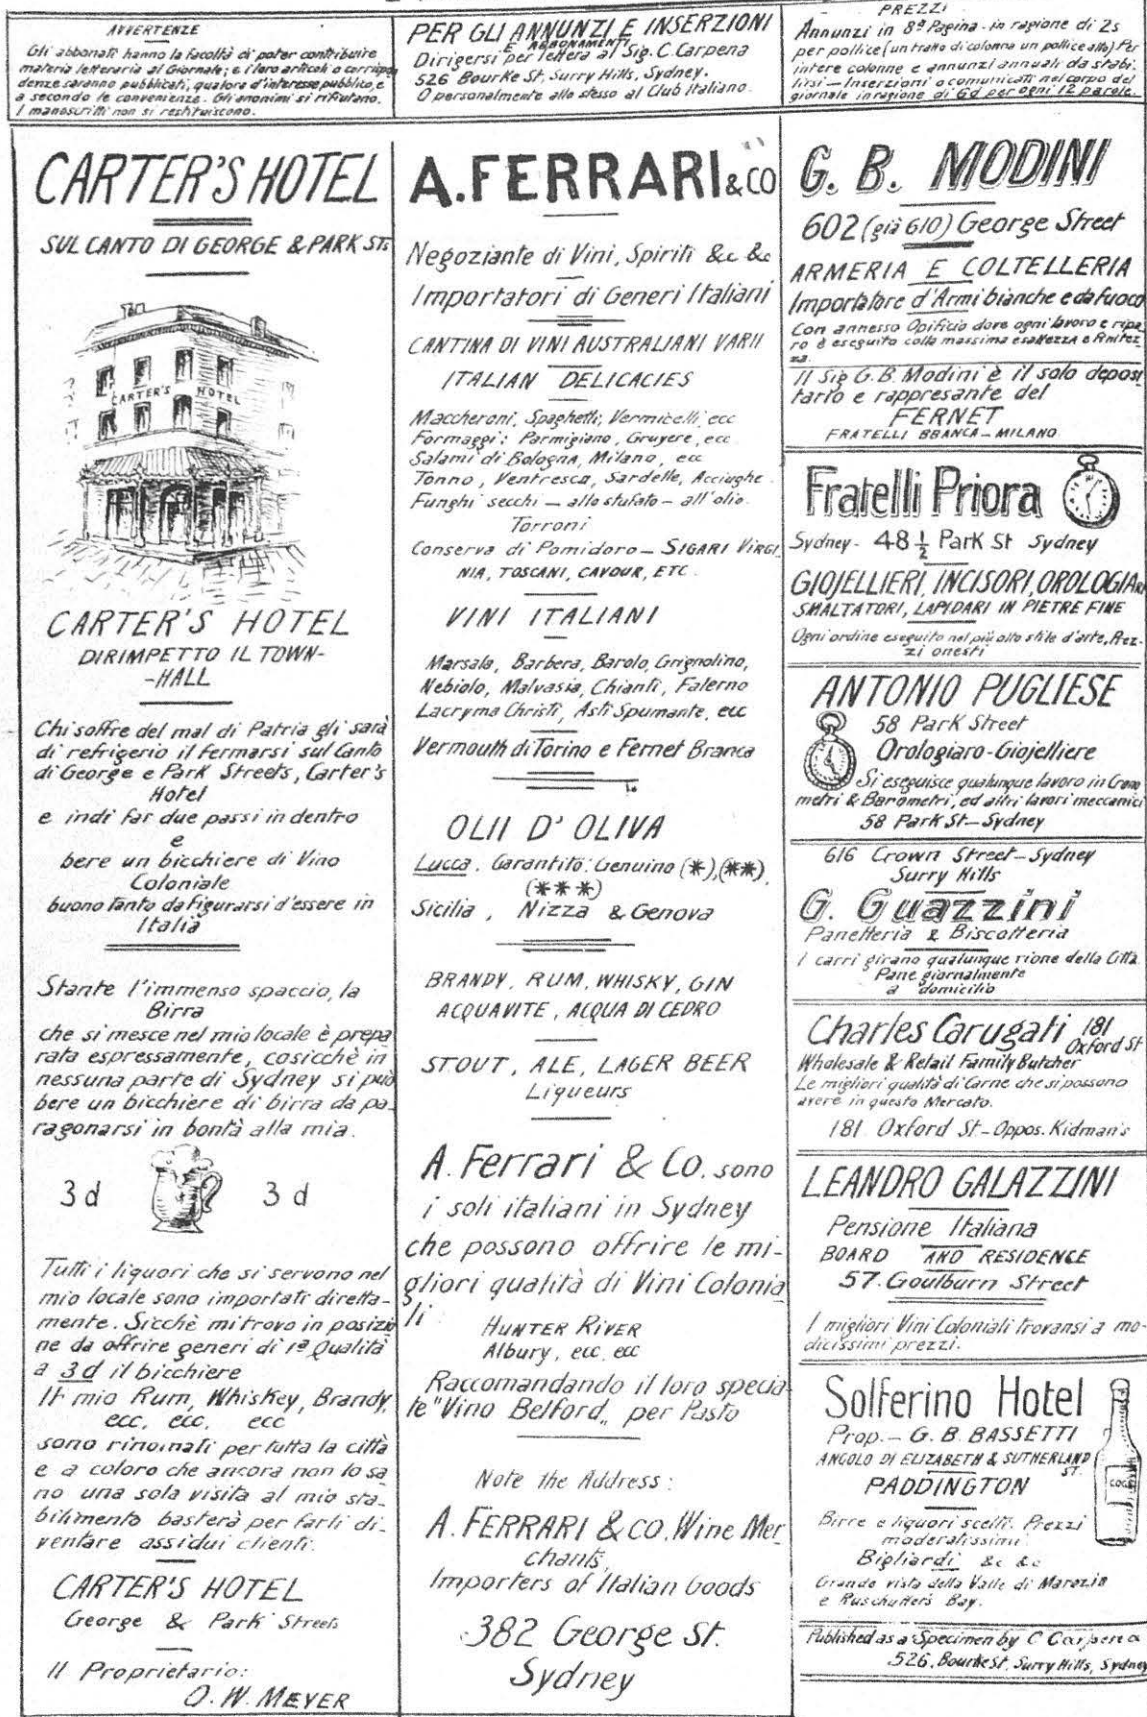 AVVERTENZE
Gli abbonati hanno la facoltà di poter contribuire
materia letteraria al Giornale; e i loro articoli o corrispon
denze saranno pubblicati, qualora d'interesse pubblico, e
a secondo le convenienze. Gli anonimi si rifiutano.
I manoscritti non si restituiscono.
PER GLI ANNUNZI E INSERZIONI
E ABBONAMENTI
Dirigersi per lettera al Sig. C. Carpena
526 Bourke St, Surry Hills, Sydney.
O personalmente allo stesso al Club Italiano.
PREZZI
Annunzi in 8ª Pagina - in ragione di 2s
per pollice (un tratto di colonna un pollice alto) Per
intere colonne e annunzi annuali da stabi-
lirsi — Inserzioni o comunicati nel corpo del
giornale in ragione di 6d per ogni 12 parole.
CARTER'S HOTEL
SUL CANTO DI GEORGE & PARK STs
CARTER'S HOTEL
CARTER'S HOTEL
DIRIMPETTO IL TOWN-
-HALL
Chi soffre del mal di Patria gli sarà
di refrigerio il fermarsi sul Canto
di George e Park Streets, Carter's
Hotel
e indi far due passi in dentro
e
bere un bicchiere di Vino
Coloniale
buono tanto da figurarsi d'essere in
Italia
Stante l'immenso spaccio, la
Birra
che si mesce nel mio locale è prepa
rata espressamente, cosicchè in
nessuna parte di Sydney si può
bere un bicchiere di birra da pa-
ragonarsi in bontà alla mia.
3 d 3 d
Tutti i liquori che si servono nel
mio locale sono importati diretta-
mente. Sicchè mi trovo in posizio
ne da offrire generi di 1ª Qualità
a 3 d il bicchiere
Il mio Rum, Whiskey, Brandy,
ecc, ecc, ecc
sono rinomati per tutta la città
e a coloro che ancora non lo sa
no una sola visita al mio sta-
bilimento basterà per farli di-
ventare assidui clienti.
CARTER'S HOTEL
George & Park Streets
Il Proprietario:
O. W. MEYER
A. FERRARI & CO
Negoziante di Vini, Spiriti &c &c
Importatori di Generi Italiani
CANTINA DI VINI AUSTRALIANI VARII
ITALIAN DELICACIES
Maccheroni, Spaghetti, Vermicelli, ecc
Formaggi: Parmigiano, Gruyere, ecc
Salami di Bologna, Milano, ecc
Tonno, Ventresca, Sardelle, Acciughe.
Funghi secchi — allo stufato — all'olio.
Torroni
Conserva di Pomidoro — SIGARI VIRGI
NIA, TOSCANI, CAVOUR, ETC.
VINI ITALIANI
Marsala, Barbera, Barolo, Grignolino,
Nebiolo, Malvasia, Chianti, Falerno
Lacryma Christi, Asti Spumante, ecc
Vermouth di Torino e Fernet Branca
OLII D'OLIVA
Lucca. Garantito: Genuino (*), (**),
(***)
Sicilia, Nizza & Genova
BRANDY, RUM, WHISKY, GIN
ACQUAVITE, ACQUA DI CEDRO
STOUT, ALE, LAGER BEER
Liqueurs
A. Ferrari & Co. sono
i soli italiani in Sydney
che possono offrire le mi-
gliori qualità di Vini Colonia
li:
HUNTER RIVER
Albury, ecc, ecc
Raccomandando il loro specia
le "Vino Belford,, per Pasto
Note the Address:
A. FERRARI & CO. Wine Mer
chants,
Importers of Italian Goods
382 George St.
Sydney
G. B. MODINI
602 (già 610) George Street
ARMERIA E COLTELLERIA
Importatore d'Armi bianche e da fuoco
Con annesso Opificio dove ogni lavoro e ripa
ro è eseguito colla massima esattezza e finitez
za.
Il Sig G. B. Modini è il solo deposi
tario e rappresante del
FERNET
FRATELLI BRANCA — MILANO
Fratelli Priora
Sydney - 48 ½ Park St Sydney
GIOJELLIERI, INCISORI, OROLOGIARI
SMALTATORI, LAPIDARI IN PIETRE FINE
Ogni ordine eseguito nel più alto stile d'arte, Prez-
zi onesti
ANTONIO PUGLIESE
58 Park Street
Orologiaro-Giojelliere
Si eseguisce qualunque lavoro in Crono
metri & Barometri, ed altri lavori meccanici
58 Park St — Sydney
616 Crown Street — Sydney
Surry Hills
G. Guazzini
Panetteria & Biscotteria
I carri girano qualunque rione della Città
Pane giornalmente
a domicilio
Charles Carugati 181
Oxford St
Wholesale & Retail Family Butcher
Le migliori qualità di Carne che si possono
avere in questo Mercato.
181 Oxford St - Oppos. Kidman's
LEANDRO GALAZZINI
Pensione Italiana
BOARD AND RESIDENCE
57. Goulburn Street
I migliori Vini Coloniali trovansi a mo-
dicissimi prezzi.
Solferino Hotel
Prop. — G. B. BASSETTI
ANGOLO DI ELIZABETH & SUTHERLAND
ST.
PADDINGTON
Birre e liquori scelti. Prezzi
moderatissimi
Bigliardi &c &c
Grande vista della Valle di Marozia
e Ruschutters Bay.
Published as a Specimen by C Carpena
526, Bourke St, Surry Hills, Sydney